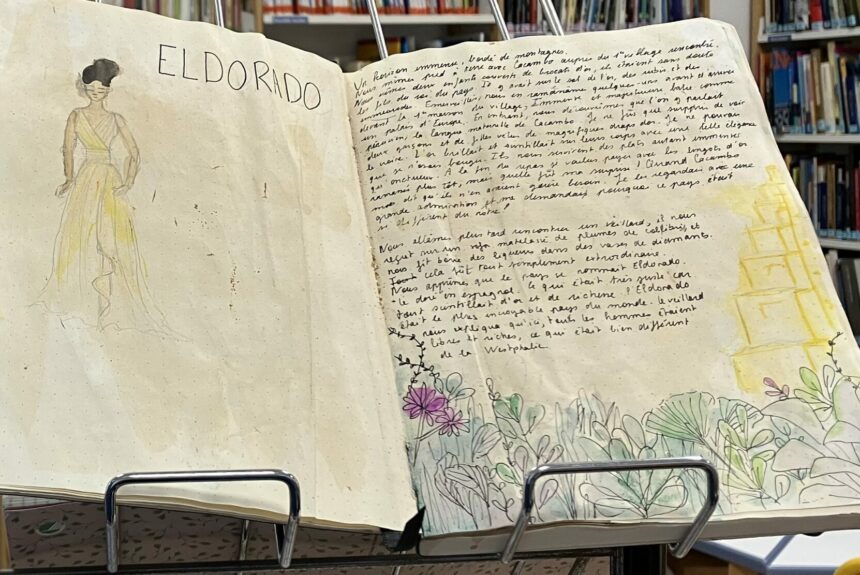 ELDORADO
Un horizon immense, bordé de montagnes.
Nous mîmes pied à terre avec Cacambo auprès du 1er village rencontré.
Nous vîmes deux enfants couverts de brocarts d'or, ils étaient sans doute
les fils du roi du pays. Il y avait sur le sol de l'or, des rubis et des
émeraudes. Emerveillés, nous en ramassâme quelques-uns avant d'arriver
devant la 1ere maison du village, immense et majestueuse batie comme
un palais d'Europe. En entrant, nous découvrîmes que l'on y parlait
péruvien, la langue maternelle de Cacambo. Je ne fus que surpris de voir
deux garçons et de filles vêtus de magnifiques draps d'or. Je ne pouvais
le croire. L'or brillait et scintillait sur leurs corps avec une telle élégance
que je n'osais bouger. Ils nous servirent des plats autant immenses
que À la fin du repas je voulus payer avec les lingots d'or
ramassés plus tôt, mais quelle fût ma surprise ! Quand Cacambo
me dit qu'ils n'en avaient guère besoin. Je les regardais avec une
grande admiration et me demandais pourquoi ce pays était
si différent du notre !
Nous allâmes plus tard rencontrer un vieillard, il nous
reçut sur un sofa matelassé de plumes de colibris et
nous fit boire des liqueurs dans des vases de diamants.
Tout cela fût tout simplement extraordinaire.
Nous apprîmes que le pays se nommait Eldorado.
"le doré" en espagnol. Ce qui était très juste car
tout scintillait d'or et de richesse. l'Eldorado
était le plus incroyable pays du monde. Le vieillard
nous expliqua qu'ici, touts les hommes étaient
libres et riches, ce que était bien différent
de la Westphalie.